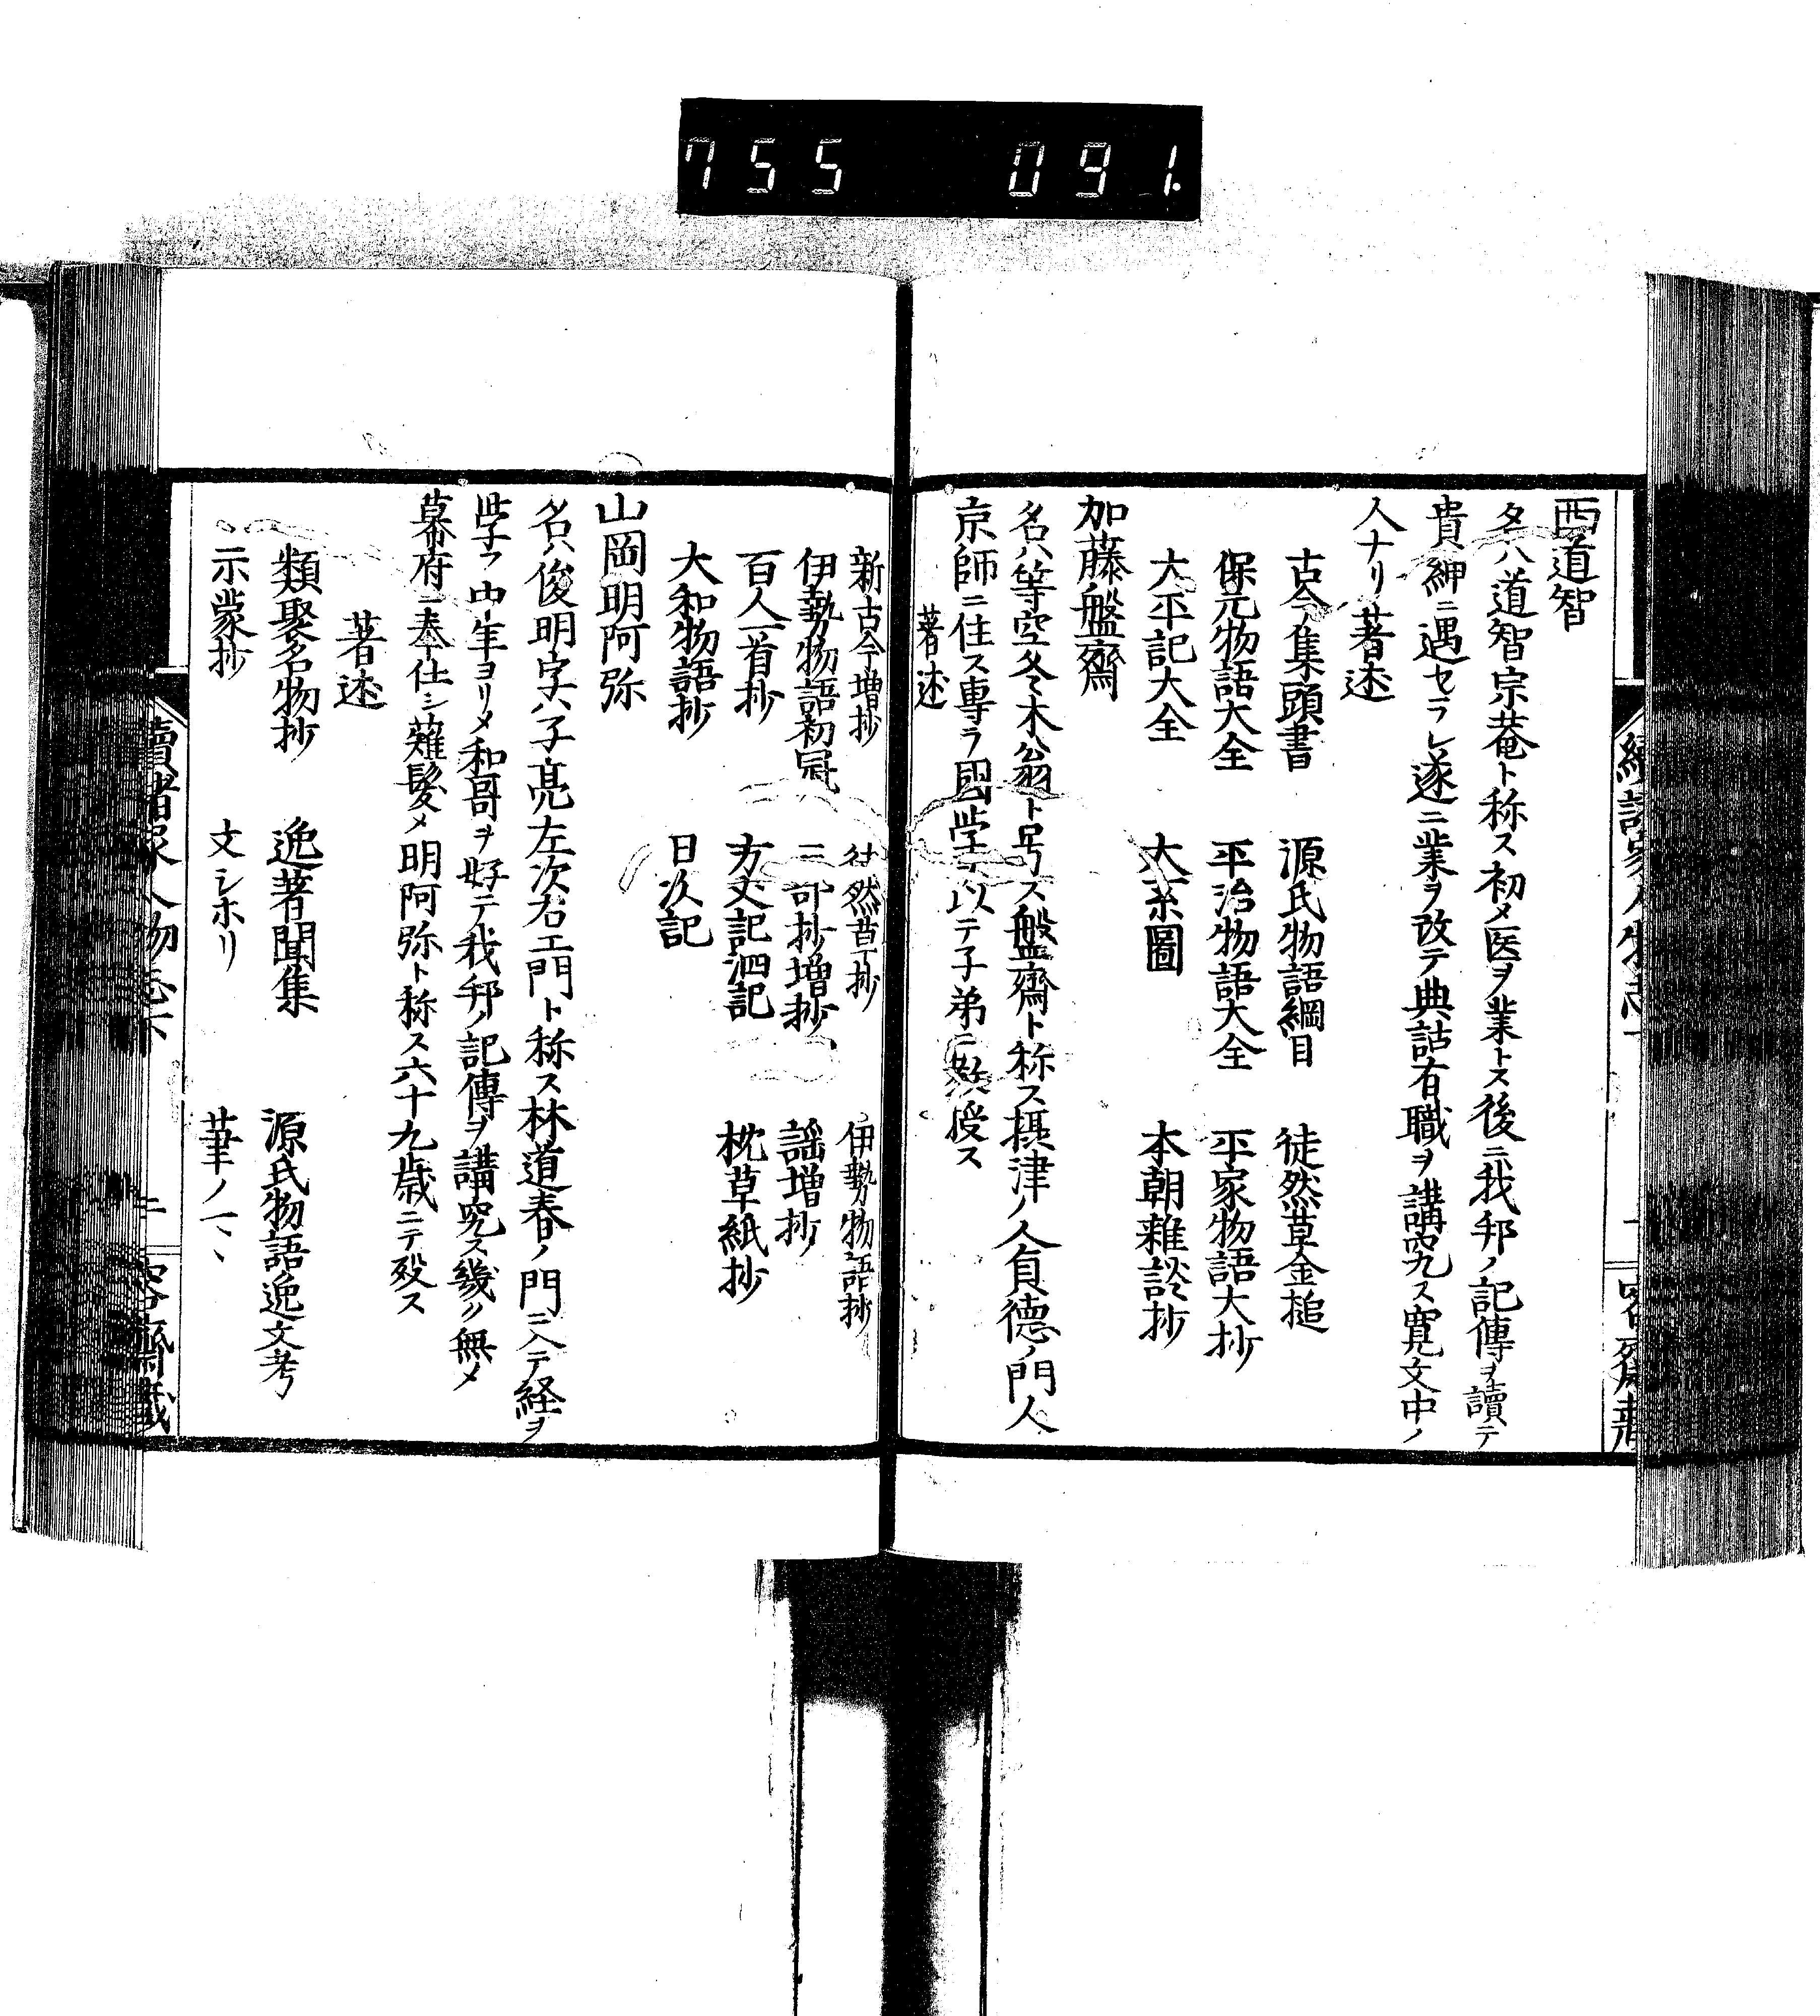 755 091.
西道智
名ハ道智宗菴ト称ス初メ医ヲ業トス後ニ我邦ノ記傳ヲ讀テ
貴紳ニ遇セラレ遂ニ業ヲ改テ典詁有職ヲ講究ス寛文中ノ
人ナリ著述
古今集頭書 源氏物語綱目 徒然草金槌
保元物語大全 平治物語大全 平家物語大抄
大平記大全 大系圖 本朝雜談抄
加藤盤齋
名ハ等空冬木翁ト号ス盤齋ト称ス摂津ノ人貞德ノ門人
京師ニ住ス専ラ國学ヲ以テ子弟ニ教授ス
著述
新古今増抄 徒然草抄 伊勢物語抄
伊勢物語初冠 三部抄増抄 謡増抄
百人一首抄 方丈記泗記 枕草紙抄
大和物語抄 日次記
山岡明阿弥
名ハ俊明字ハ子亮左次右エ門ト称ス林道春ノ門ニ入テ経ヲ
学フ中年ヨリメ和哥ヲ好テ我邦ノ記傳ヲ講究ス幾ノ無メ
幕府ニ奉仕シ薙髪メ明阿弥ト称ス六十九歳ニテ殁ス
著述
類聚名物抄 逸著聞集 源氏物語逸文考
示蒙抄 文シホリ 筆ノ一、
續諸家人物志下 二